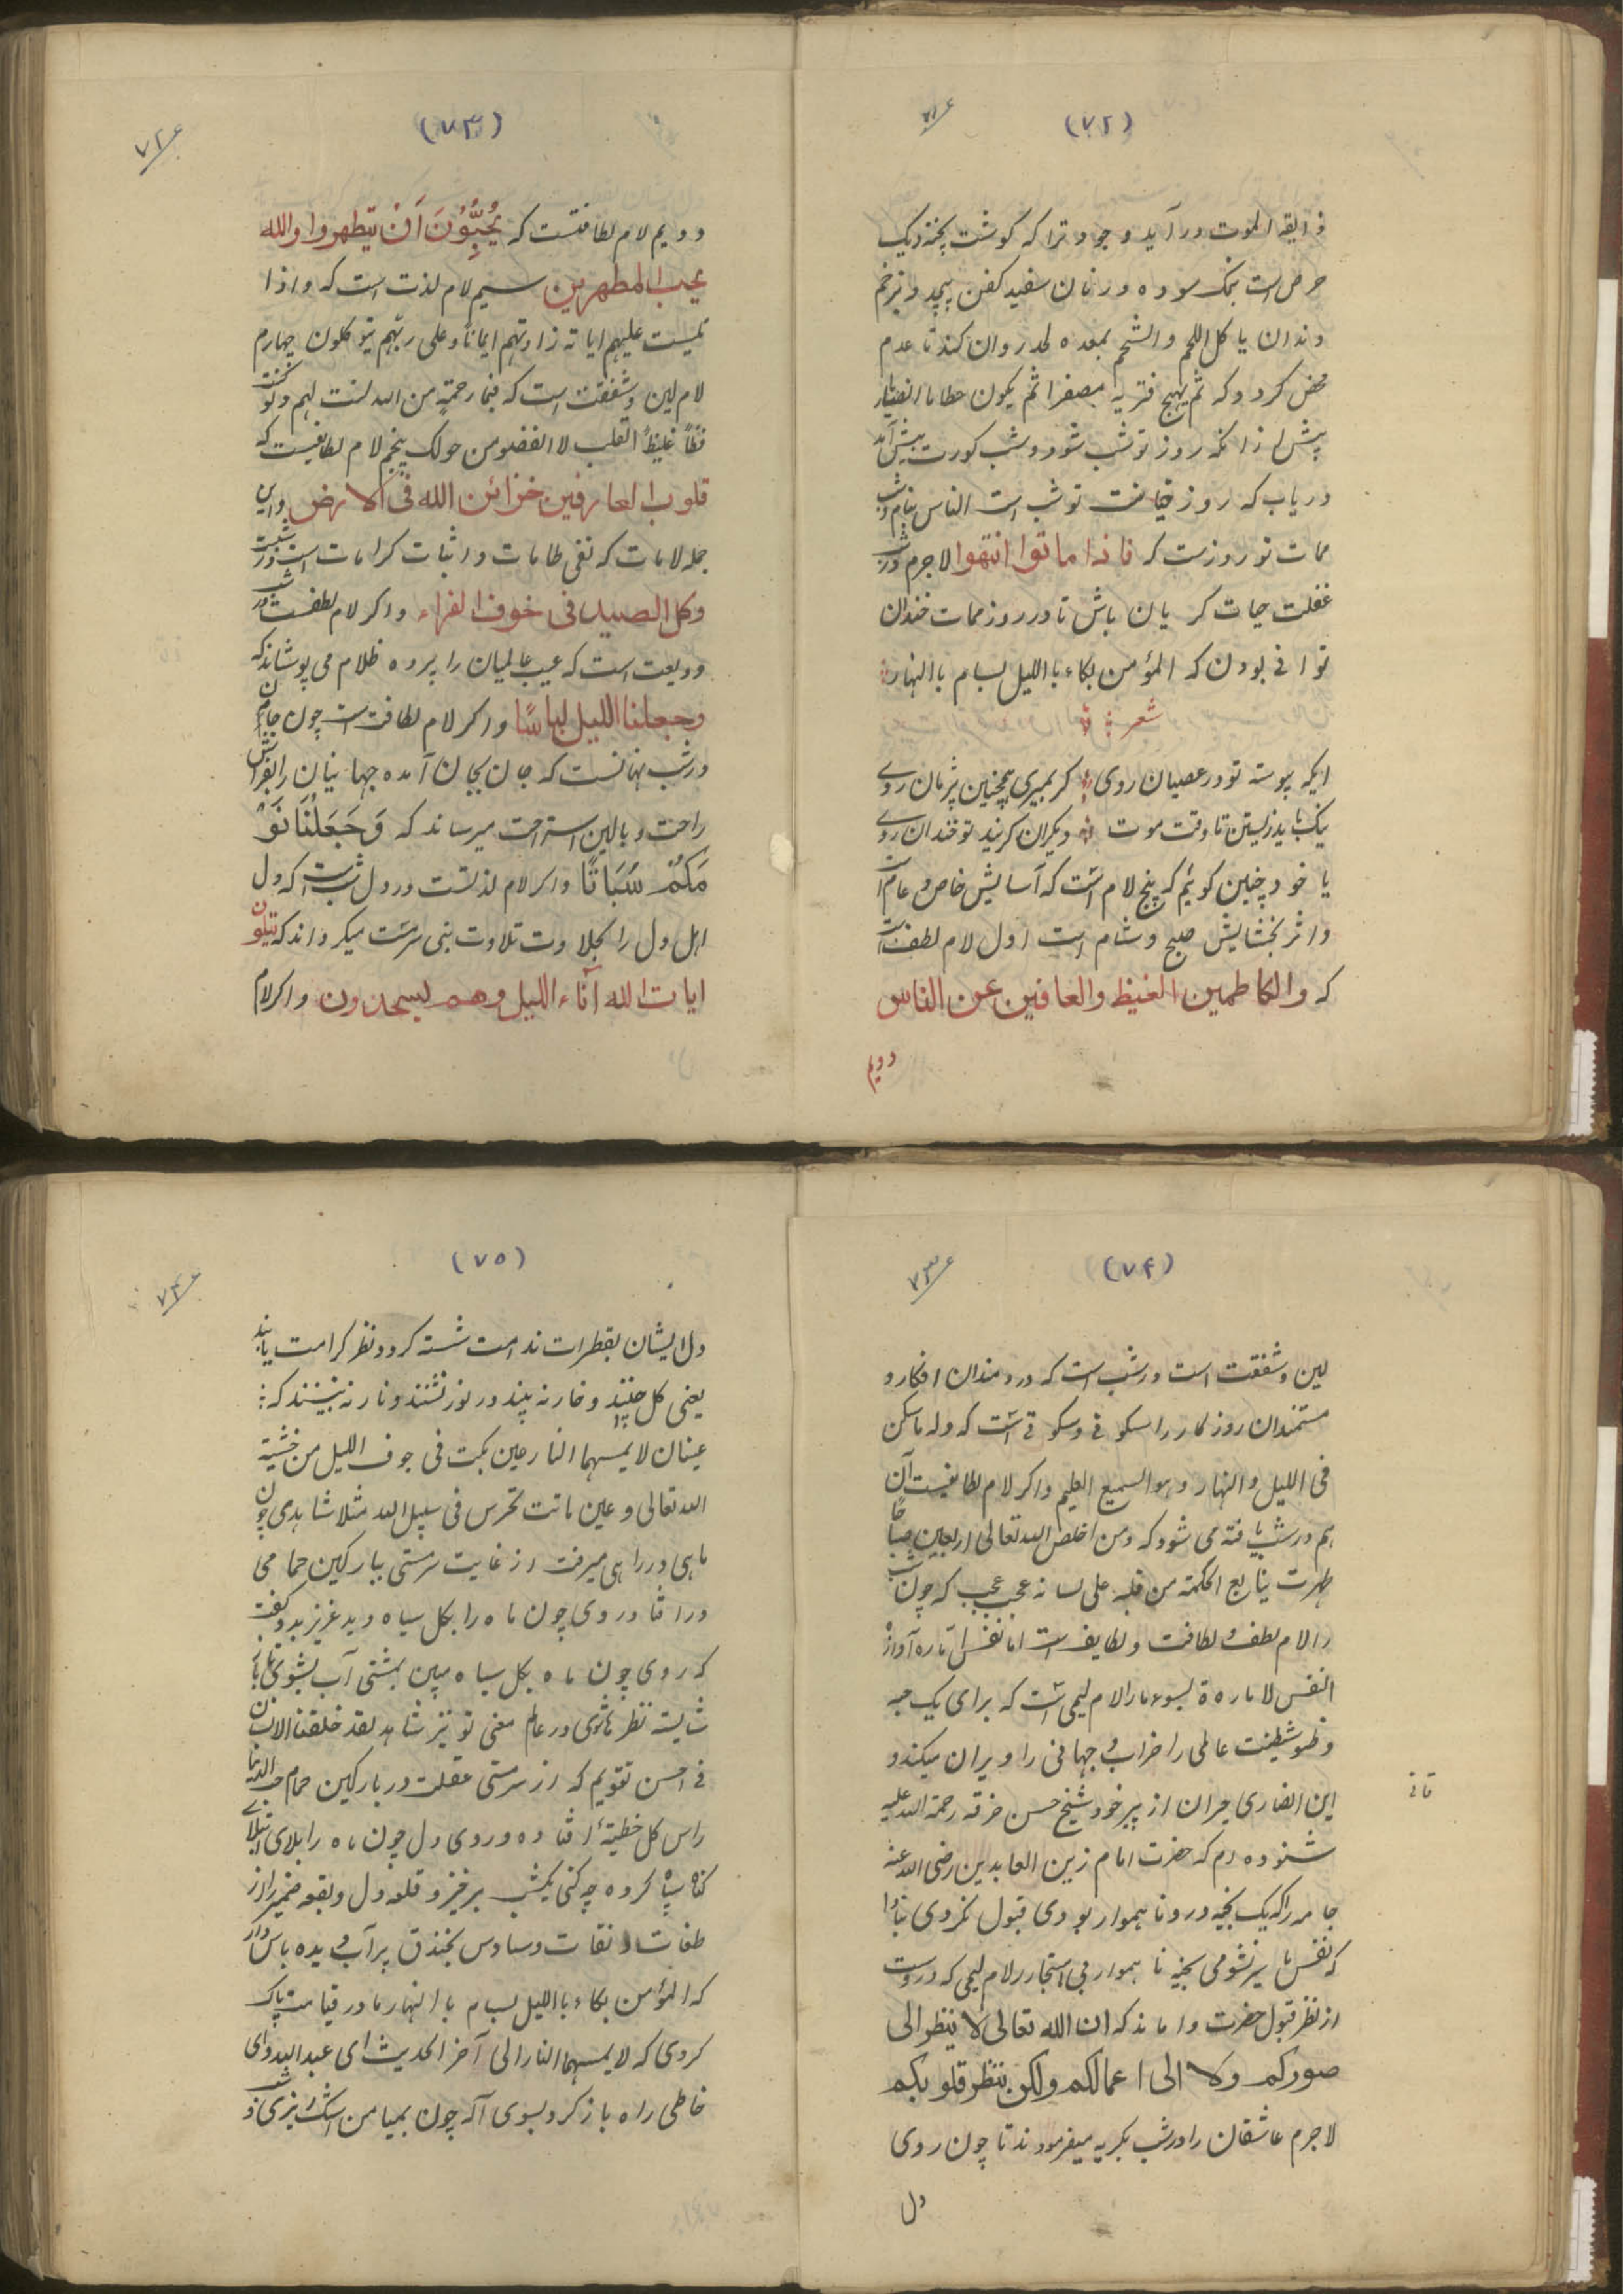 (۷۲)
ذایقه الموت درآید وجود ترا که کوشت پخته دیک
حرص است نمک سوده در نان سفید کفن پیچد و بزخم
دندان یا کل اللحم والشحم بمعده لحد روان کند تا عدم
محض کردد که ثم یهیج فتریه مصفرا ثم یکون حطاما
پیش از انکه روز تو شب شود و شب کورت پیش آید
دریاب که روز تو شب است الناس نیام و شب
ممات تو روزست که فاذا ماتوا انتهوا لاجرم در شب
غفلت حیات کریان باش تا در روز ممات خندان
توانی بودن که المؤمن بکاء باللیل بسام باالنهار
شعر
ایکه پیوسته تو در عصیان روی کر بمیری همچنین پژمان روی
نیک باید زیستن تا وقت موت دیکران کریند تو خندان روی
یا خود چنین کوئیم که پنج لام است که آسایش خاص و عام است
واثر بخشایش صبح و شام است اول لام لطف است
که والکاظمین الغیظ والعافین عن الناس
دویم
(۷۳)
۷۲
دویم لام لطافتست که یُحِبُّوْنَ اَنْ یتطهروا والله
یحب المطهرین سیم لام لذت است که واذا
تلیست علیهم ایاته زادتهم ایماناً وعلی ربهم یتوکلون چهارم
لام لین و شفقت است که فبما رحمةٍ من الله لنت لهم ولو کنت
فظاً غلیظ القلب لاانفضلو من حولک پنجم لام لطایفیست که
قلوب العارفین خزائن الله فی الارض واین
جمله لامات که نفی طامات و اثبات کرامات است در شبست
وکل الصید فی خوف الفراء واکر لام لطفست در شب
ودیعت است که عیب عالمیان را پرده ظلام می پوشاند که
وجعلنا اللیل لباسًا واکر لام لطافت است چون جان
در شب نهانست که جان بجان آمده جهانیان را بفراش
راحت و بالین استراحت میرساند که وَجَعَلْنَا نَوْ
مَکُمْ سُبَاتًا واکر لام لذتست در دل شب است که دل
اهل دل را بحلاوت تلاوت بنی سرمست میکرداند که یتلون
ایات الله آناء اللیل وهم یسجدون واکر لام
(۷۴)
۷۳
لین و شفقت است در شب است که دردمندان افکار و
مستمندان روزکار را سکونی و سکونی است که وله ما سکن
فی اللیل والنهار وهو السمیع العلیم واکر لام لطایفیست آن
هم در شب یافته می شود که ومن اخلص الله تعالی اربعین صباحًا
ظهرت ینابیع الحکمته من قلبه علی لسانه عجب عجب که چون شب
رالام لطف و لطافت و لطایف است اما نفس اماره آوازه
النفس لامارة بسوء مارالام لیمی است که برای یک حبه
وظو شیطنت عالمی را خراب و جهانی را ویران میکند و
این انصاری حیران از پیر خود شیخ حسن خرقه رحمة الله علیه
شنوده ام که حضرت امام زین العابدین رضی الله عنه
جامه را که یک بخیه درو ناهمواربودی قبول نکردی بنا را
که نفس ما بی استحار رلام لیمی که در وست
از نظر قبول حضرت واماند که ان الله تعالی لا ینظر الی
صورکم ولا الی اعمالکم ولکن ینظر قلوبکم
لاجرم عاشقان را در شب بکریه میفرمودند تا چون روی
دل
(۷۵)
۷۴
دل ایشان بقطرات ندامت شسته کردد نظر کرامت یابند
یعنی کل چنند و خار نه بینند در نور نشتند و نار نه بینند که
عینان لا یمسهما النار عین بکت فی جوف اللیل من خشیة
الله تعالی وعین باتت تحرس فی سبیل الله مثلا شاهدی چون
ماهی در راهی میرفت از غایت سرمستی ببارکین حمامی
درافتاد روی چون ماه را بکل سیاه دید عزیزی بدو گفت
که روی چون ماه بکل سیاه مبین بمشتی آب بشوی تا
شایسته نظر ما شوی در عالم معنی تو نیز شاهد لقد خلقنا الانسان
فی احسن تقویم که از سرمستی غفلت در بارکین حمام حب الدنیا
راس کل خطیئة افتاده و روی دل چون ماه را بلای ابتلای
کناه سیاه کرده چه کنی یکشب برخیز و قلعه دل و بقعه ضمیر از
طغات نفقات وساوس بخندق پر آب دیده پاس دار
که المؤمن بکاء باللیل بسام باالنهار تا در قیامت پاک
کردی که لا یمسهما النار الی آخر الحدیث ای عبد الله وای
خاطی راه باز کرد بسوی آکه چون بمیامن اشک ریزی در شب